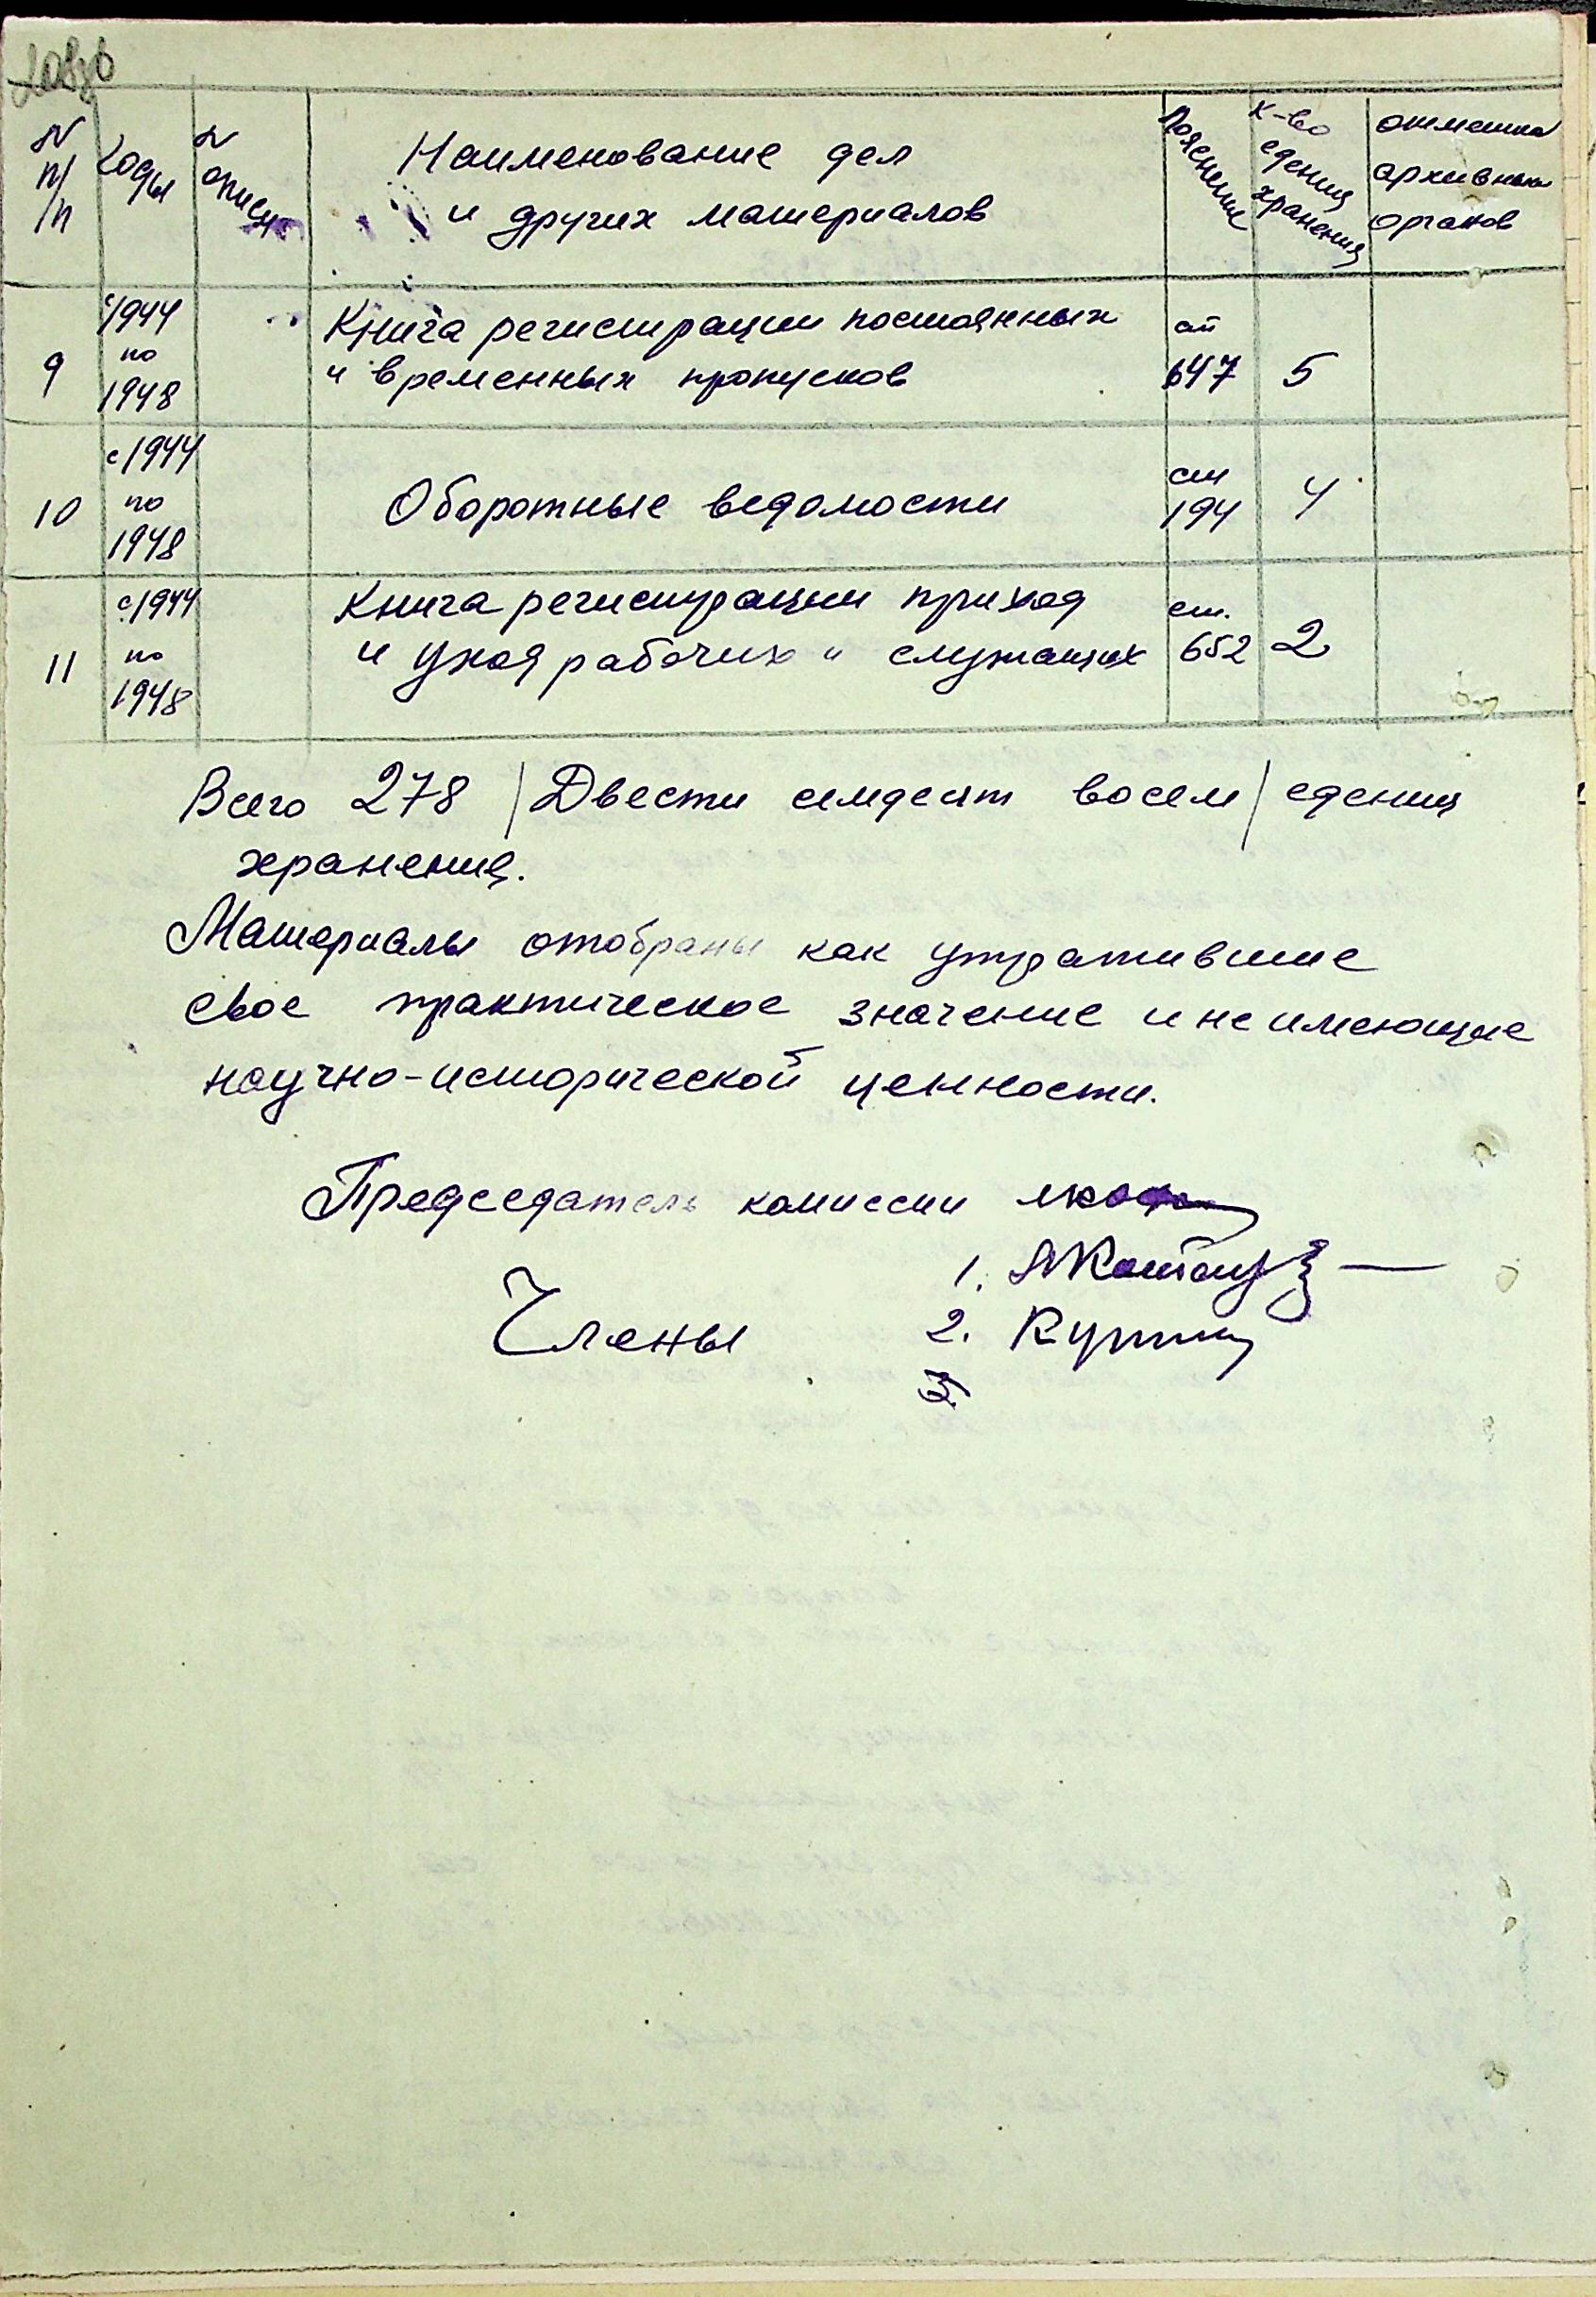 N п/п Годы N описи Наименование дел и других материалов Пояснение К-во едениц хранения отметка архивных органов
9 с1944 по 1948 Книга регистрации постоянных и временных пропусков ст 647 5
10 с1944 по 1948 Оборотные ведомости ст 194 4
11 с1944 по 1948 Книга регистрации приход и уход рабочих и служащих ст. 652 2
Всего 278 /Двести семдесят восем/ едениц
хранения.
Материалы отобраны как утратившие
свое практическое значение и не имеющие
научно-исторической ценности.
Председатель комиссии
1.
Члены 2.
3.